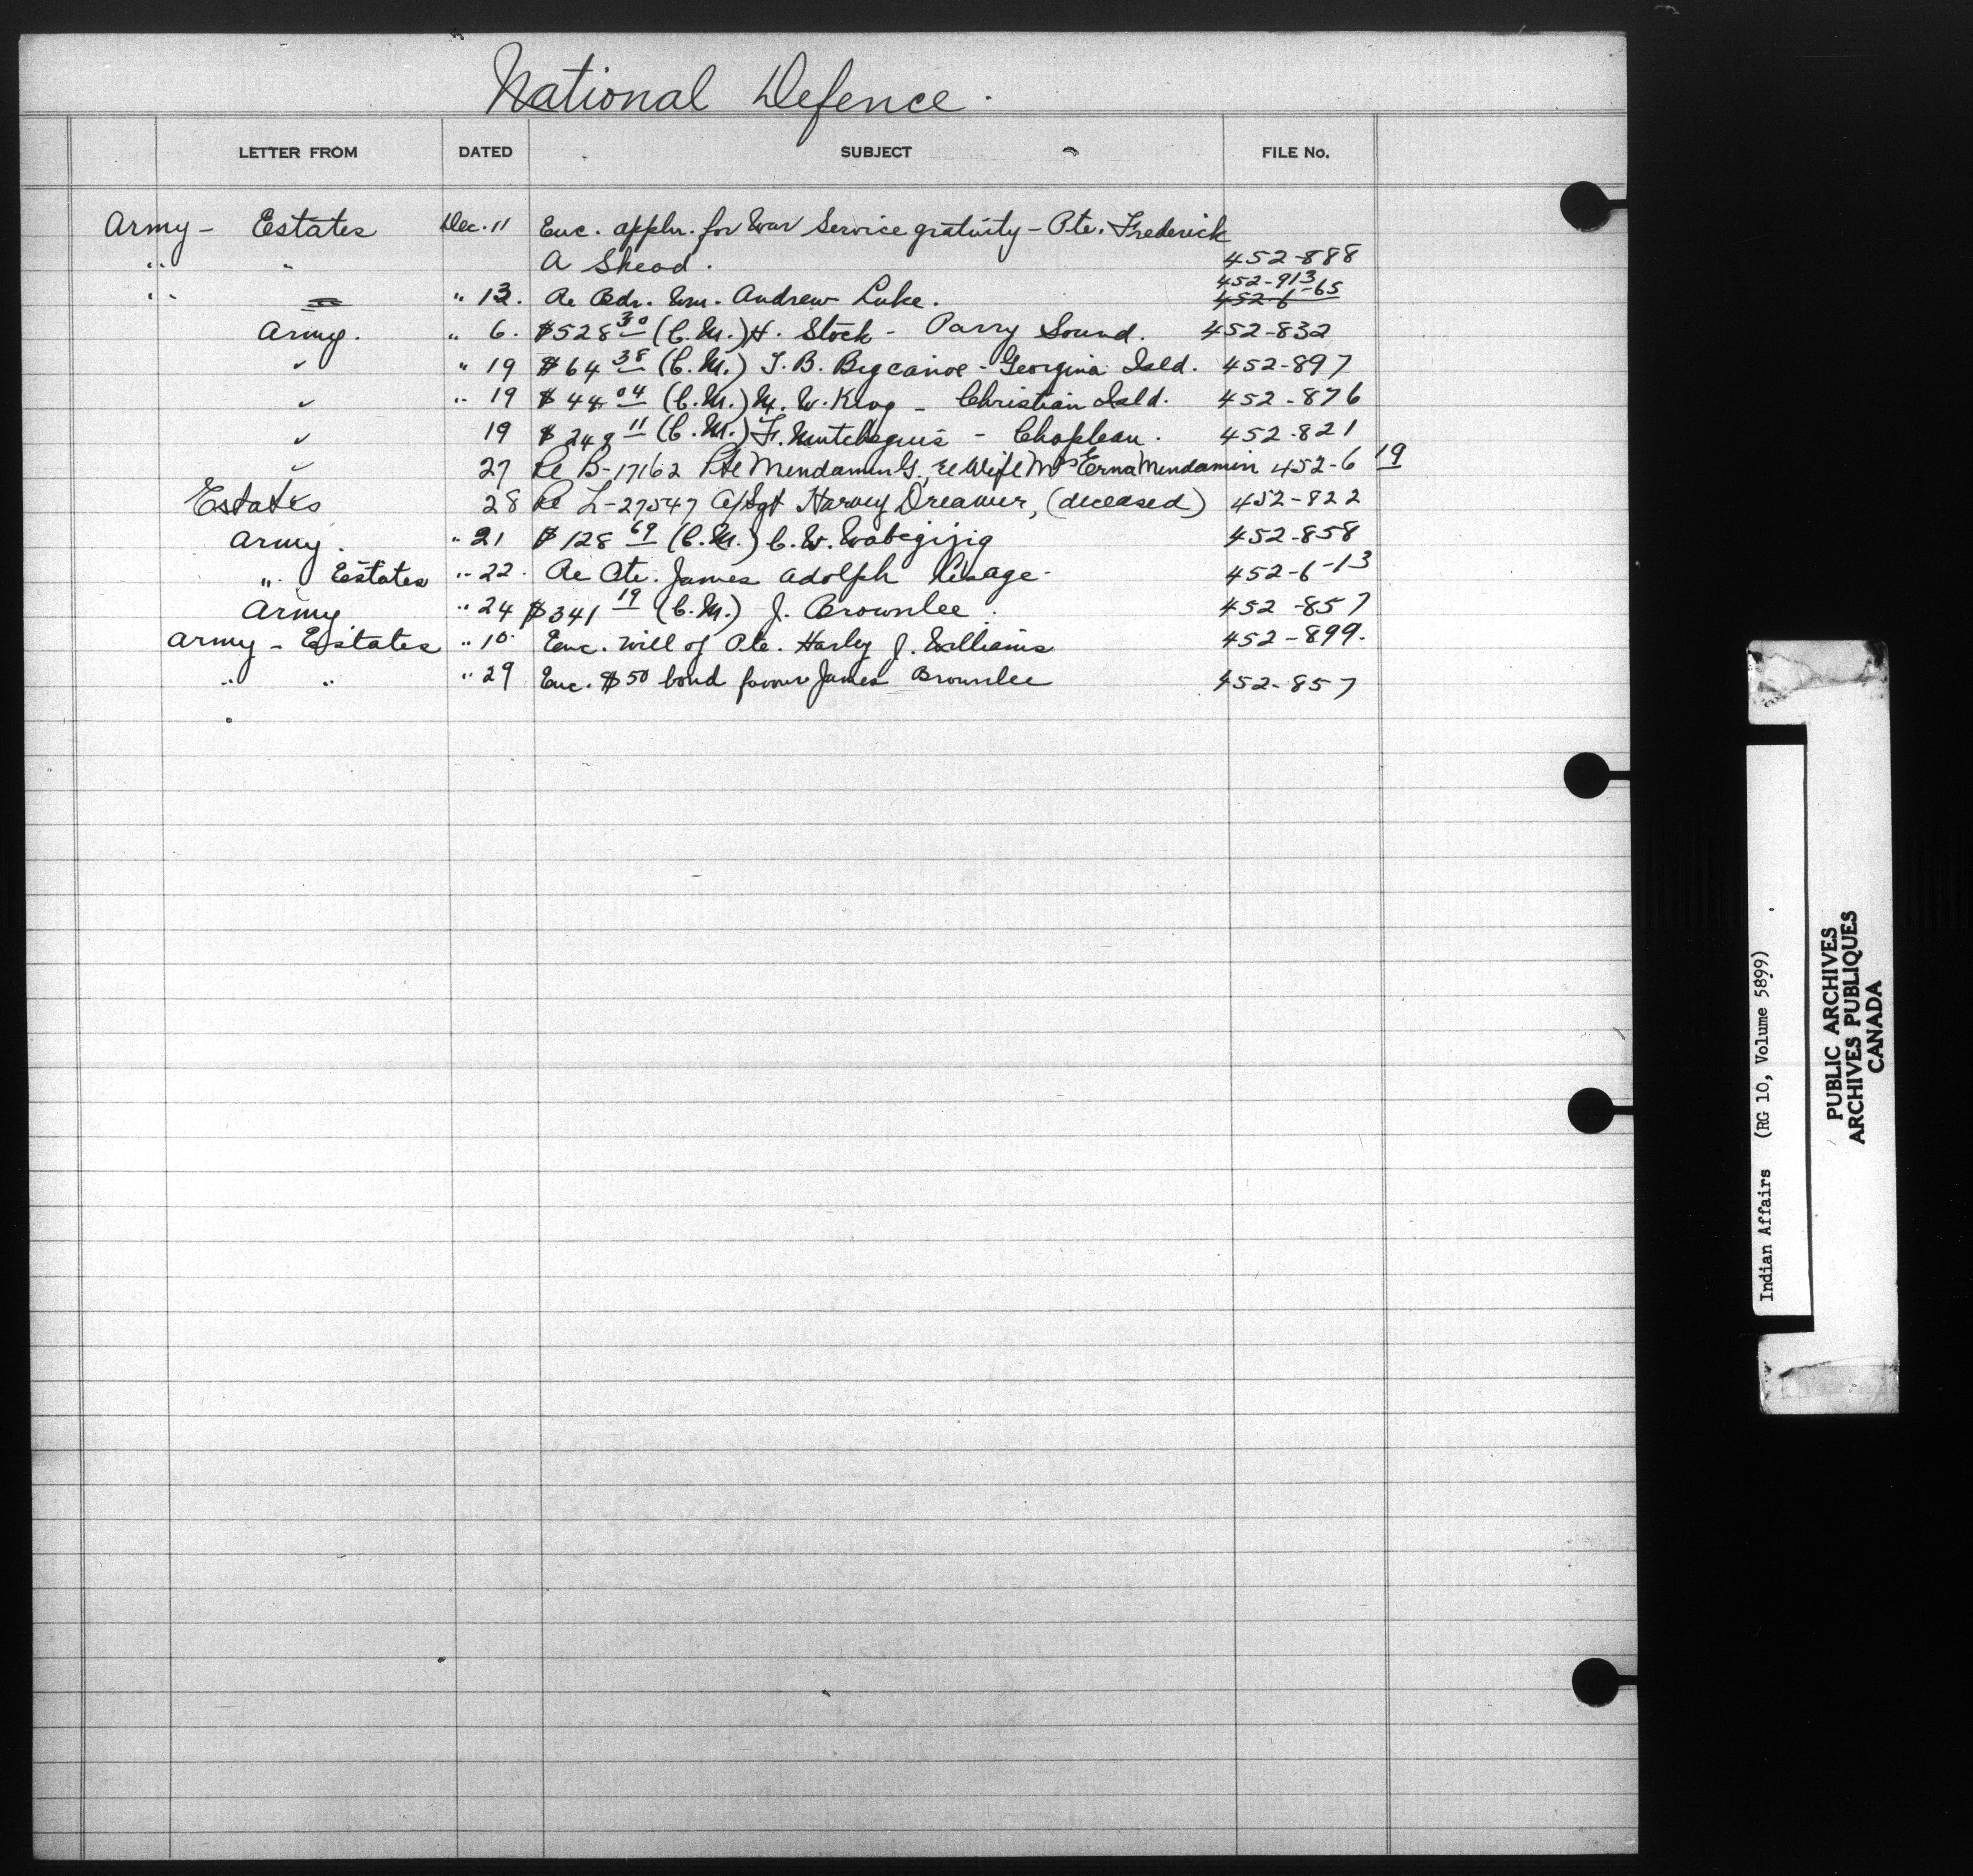 National Defence.
LETTER FROM DATED SUBJECT FILE No.
Army - Estates Dec. 11 Enc. appln. for War Service gratuity - Pte. Frederick
" " A Shead. 452-888
452-913
" " 13. Re Bdr. Wm. Andrew Luke. 452-6-65
Army. " 6. $528 30 (C.M.) H. Stock - Parry Sound. 452-832
" " 19 $64 38 (C.M.) T. B. Bigcanoe - Georgina Isld. 452-897
" " 19 $44 04 (C.M.) M. W. King - Christian Isld. 452-876
" 19 $248 11 (C.M.) F. - Chapleau. 452-821
" 27 Re B-17162 Pte Mendamin G., re Wife Mrs Erna Mendamin 452-6 19
Estates 28 Re L-27547 A/Sgt Harvey Dreaver, (deceased) 452-822
Army. " 21 $128 69 (C.M.) C. W. Wabegijig 452-858
" Estates " 22. Re Pte. James Adolph Lesage. 452-6-13
Army " 24 $341 19 (C.M.) J. Brownlee. 452-857
Army - Estates " 10. Enc. will of Pte. Harley J. Williams 452-899.
" " " 29 Enc. $50 bond favour James Brownlee 452-857
Indian Affairs (RG 10, Volume 5899)
PUBLIC ARCHIVES
ARCHIVES PUBLIQUES
CANADA